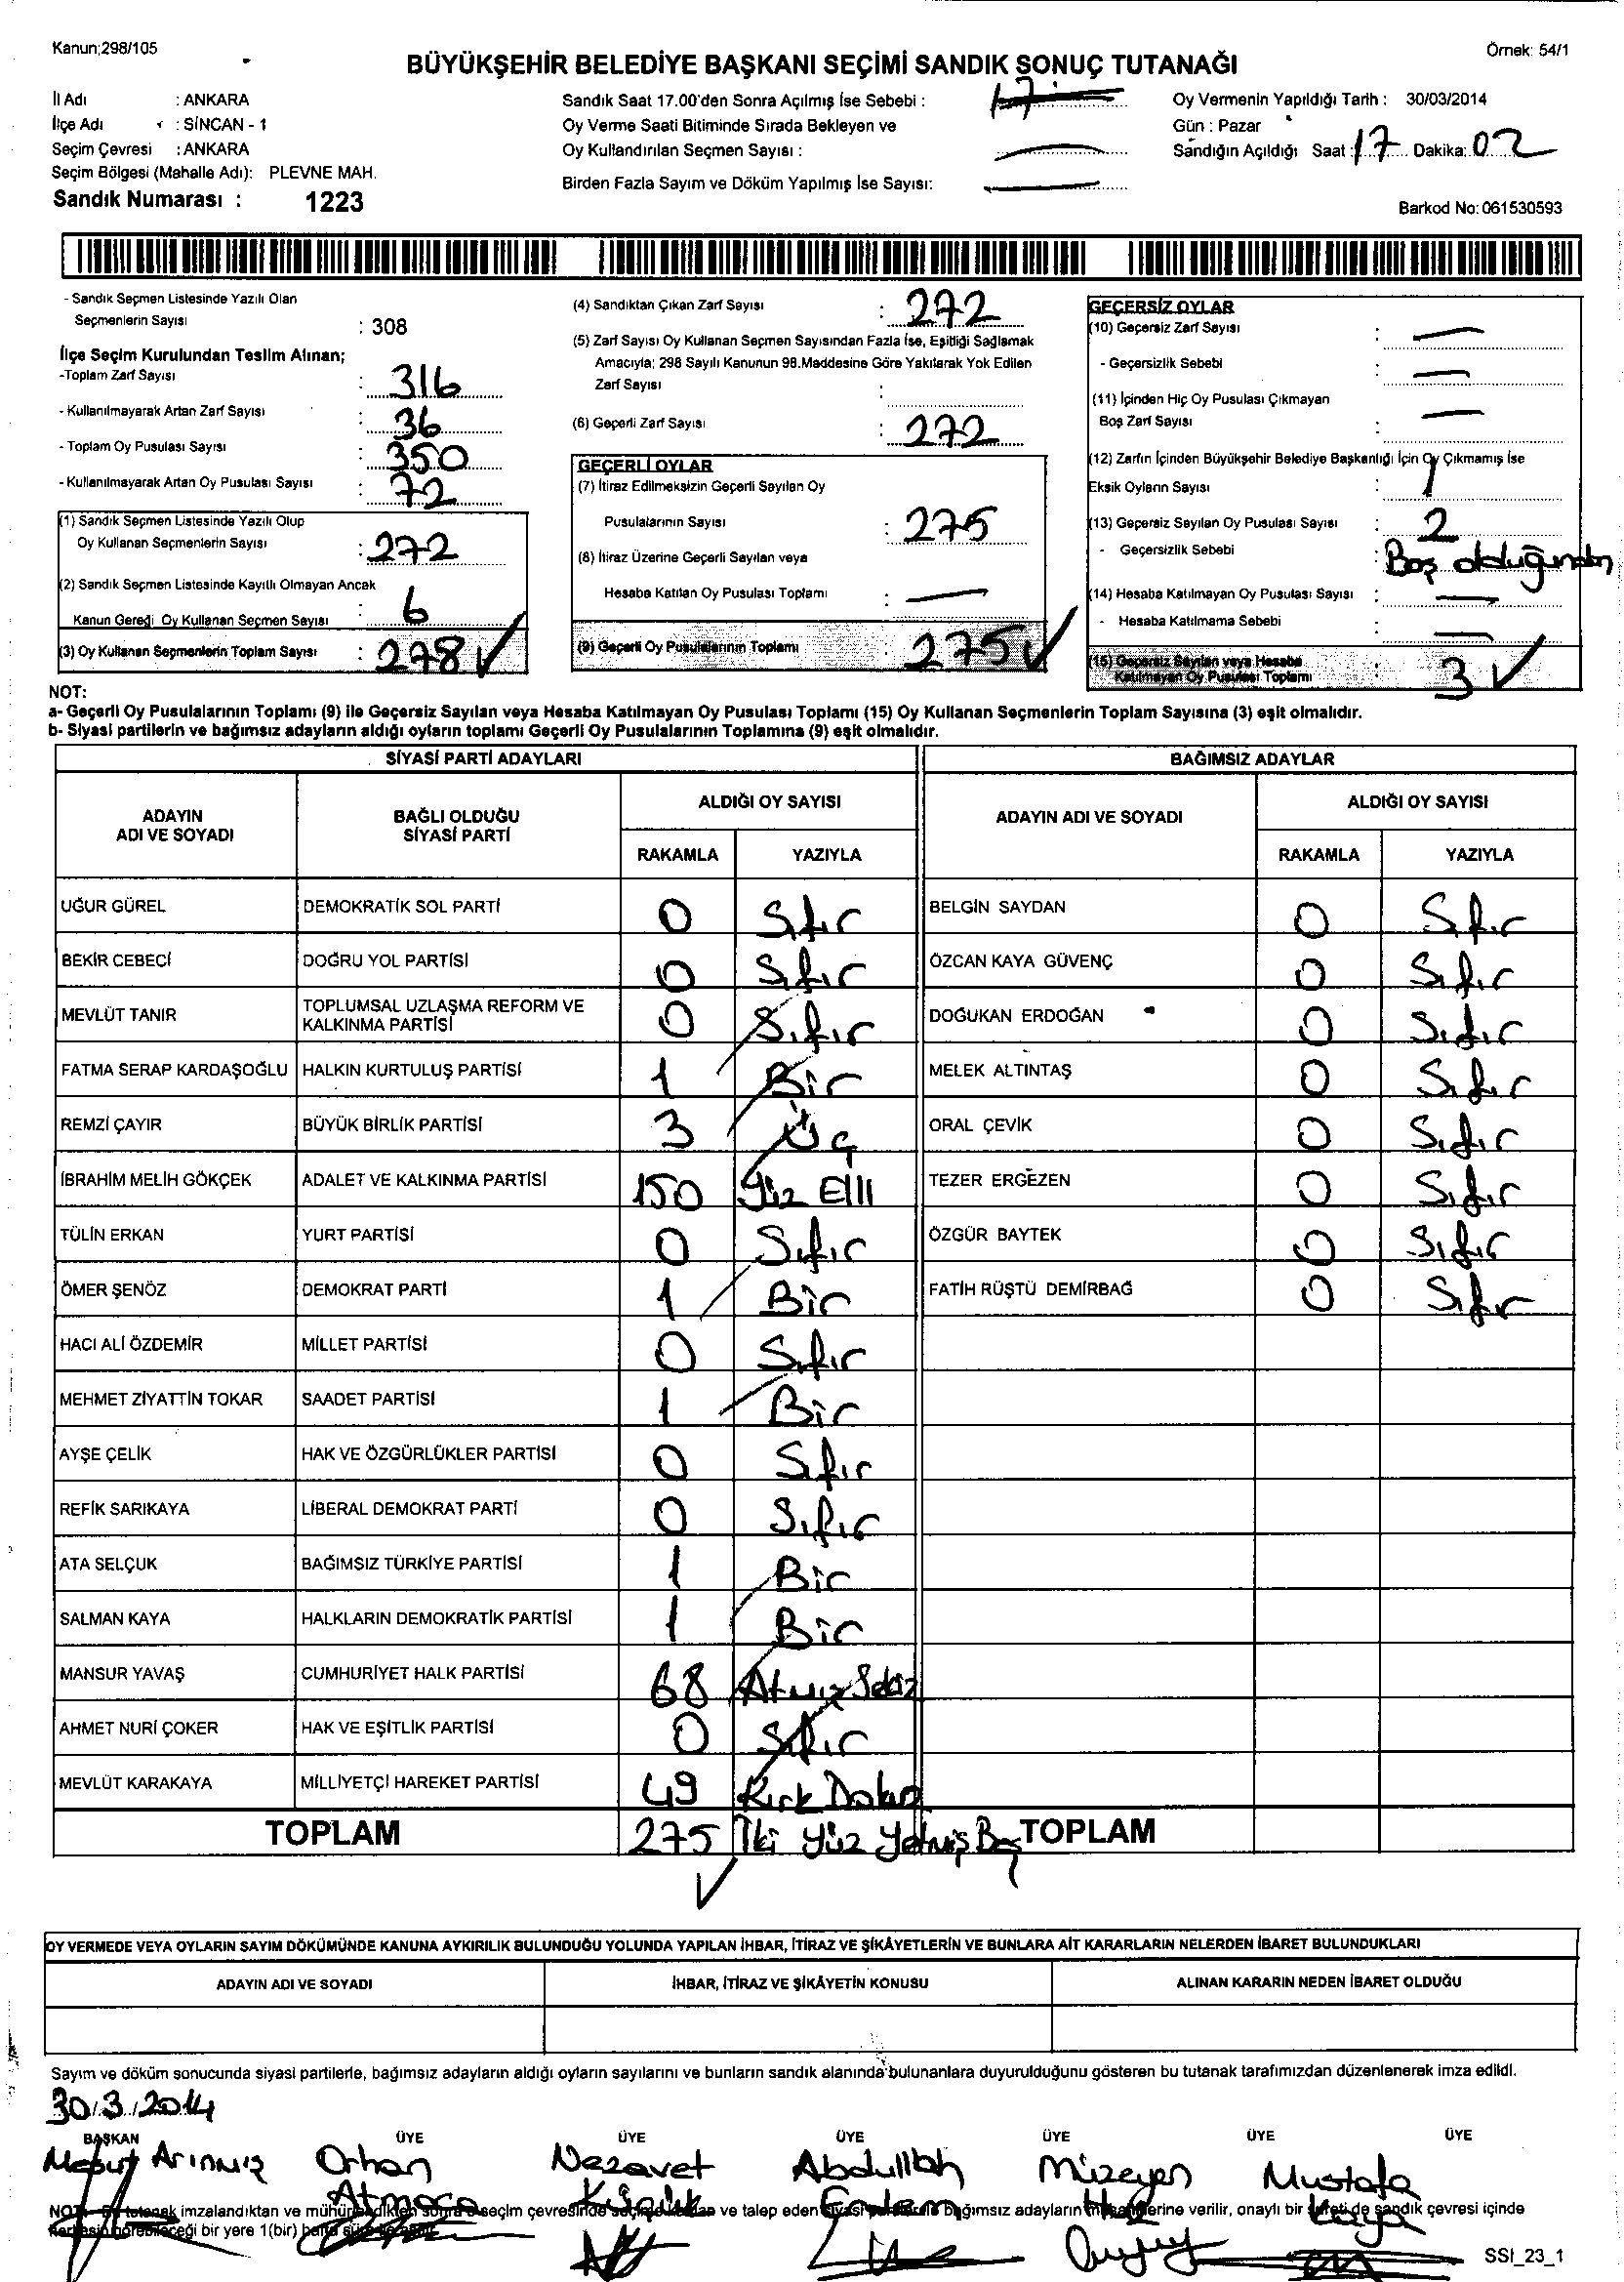 Kanun;298/105
Örnek: 54/1
BÜYÜKŞEHİR BELEDİYE BAŞKANI SEÇİMİ SANDIK SONUÇ TUTANAĞI
İl Adı : ANKARA
İlçe Adı : SİNCAN - 1
Seçim Çevresi : ANKARA
Seçim Bölgesi (Mahalle Adı): PLEVNE MAH.
Sandık Numarası : 1223
Sandık Saat 17.00'den Sonra Açılmış İse Sebebi : 17
Oy Verme Saati Bitiminde Sırada Bekleyen ve
Oy Kullandırılan Seçmen Sayısı : —
Birden Fazla Sayım ve Döküm Yapılmış İse Sayısı: —
Oy Vermenin Yapıldığı Tarih : 30/03/2014
Gün : Pazar
Sandığın Açıldığı Saat : 17 Dakika: 02
Barkod No: 061530593
- Sandık Seçmen Listesinde Yazılı Olan
Seçmenlerin Sayısı : 308
İlçe Seçim Kurulundan Teslim Alınan;
-Toplam Zarf Sayısı : 316
- Kullanılmayarak Artan Zarf Sayısı : 36
- Toplam Oy Pusulası Sayısı : 350
- Kullanılmayarak Artan Oy Pusulası Sayısı : 72
(1) Sandık Seçmen Listesinde Yazılı Olup
Oy Kullanan Seçmenlerin Sayısı : 272
(2) Sandık Seçmen Listesinde Kayıtlı Olmayan Ancak
Kanun Gereği Oy Kullanan Seçmen Sayısı : 6
(3) Oy Kullanan Seçmenlerin Toplam Sayısı : 278 ✓
(4) Sandıktan Çıkan Zarf Sayısı : 272
(5) Zarf Sayısı Oy Kullanan Seçmen Sayısından Fazla İse, Eşitliği Sağlamak
Amacıyla; 298 Sayılı Kanunun 98.Maddesine Göre Yakılarak Yok Edilen
Zarf Sayısı :
(6) Geçerli Zarf Sayısı : 272
GEÇERLİ OYLAR
(7) İtiraz Edilmeksizin Geçerli Sayılan Oy
Pusulalarının Sayısı : 275
(8) İtiraz Üzerine Geçerli Sayılan veya
Hesaba Katılan Oy Pusulası Toplamı : —
(9) Geçerli Oy Pusulalarının Toplamı : 275 ✓
GEÇERSİZ OYLAR
(10) Geçersiz Zarf Sayısı : —
- Geçersizlik Sebebi : —
(11) İçinden Hiç Oy Pusulası Çıkmayan
Boş Zarf Sayısı : —
(12) Zarfın İçinden Büyükşehir Belediye Başkanlığı İçin Oy Çıkmamış İse
Eksik Oyların Sayısı : 1
(13) Geçersiz Sayılan Oy Pusulası Sayısı : 2
- Geçersizlik Sebebi : Boş olduğundan
(14) Hesaba Katılmayan Oy Pusulası Sayısı : —
- Hesaba Katılmama Sebebi : —
(15) Geçersiz Sayılan veya Hesaba
Katılmayan Oy Pusulası Toplamı : 3 ✓
NOT:
a- Geçerli Oy Pusulalarının Toplamı (9) ile Geçersiz Sayılan veya Hesaba Katılmayan Oy Pusulası Toplamı (15) Oy Kullanan Seçmenlerin Toplam Sayısına (3) eşit olmalıdır.
b- Siyasi partilerin ve bağımsız adayların aldığı oyların toplamı Geçerli Oy Pusulalarının Toplamına (9) eşit olmalıdır.
SİYASİ PARTİ ADAYLARI
ADAYIN ADI VE SOYADI
BAĞLI OLDUĞU SİYASİ PARTİ
ALDIĞI OY SAYISI
RAKAMLA YAZIYLA
UĞUR GÜREL DEMOKRATİK SOL PARTİ 0 Sıfır
BEKİR CEBECİ DOĞRU YOL PARTİSİ 0 Sıfır
MEVLÜT TANIR TOPLUMSAL UZLAŞMA REFORM VE KALKINMA PARTİSİ 0 Sıfır
FATMA SERAP KARDAŞOĞLU HALKIN KURTULUŞ PARTİSİ 1 Bir
REMZİ ÇAYIR BÜYÜK BİRLİK PARTİSİ 3 Üç
İBRAHİM MELİH GÖKÇEK ADALET VE KALKINMA PARTİSİ 150 Yüz Elli
TÜLİN ERKAN YURT PARTİSİ 0 Sıfır
ÖMER ŞENÖZ DEMOKRAT PARTİ 1 Bir
HACI ALİ ÖZDEMİR MİLLET PARTİSİ 0 Sıfır
MEHMET ZİYATTİN TOKAR SAADET PARTİSİ 1 Bir
AYŞE ÇELİK HAK VE ÖZGÜRLÜKLER PARTİSİ 0 Sıfır
REFİK SARIKAYA LİBERAL DEMOKRAT PARTİ 0 Sıfır
ATA SELÇUK BAĞIMSIZ TÜRKİYE PARTİSİ 1 Bir
SALMAN KAYA HALKLARIN DEMOKRATİK PARTİSİ 1 Bir
MANSUR YAVAŞ CUMHURİYET HALK PARTİSİ 68 Atmış Sekiz
AHMET NURİ ÇOKER HAK VE EŞİTLİK PARTİSİ 0 Sıfır
MEVLÜT KARAKAYA MİLLİYETÇİ HAREKET PARTİSİ 49 Kırk Dokuz
TOPLAM 275 İki Yüz Yetmiş Beş
BAĞIMSIZ ADAYLAR
ADAYIN ADI VE SOYADI
ALDIĞI OY SAYISI
RAKAMLA YAZIYLA
BELGİN SAYDAN 0 Sıfır
ÖZCAN KAYA GÜVENÇ 0 Sıfır
DOĞUKAN ERDOĞAN 0 Sıfır
MELEK ALTINTAŞ 0 Sıfır
ORAL ÇEVİK 0 Sıfır
TEZER ERGEZEN 0 Sıfır
ÖZGÜR BAYTEK 0 Sıfır
FATİH RÜŞTÜ DEMİRBAĞ 0 Sıfır
TOPLAM
OY VERMEDE VEYA OYLARIN SAYIM DÖKÜMÜNDE KANUNA AYKIRILIK BULUNDUĞU YOLUNDA YAPILAN İHBAR, İTİRAZ VE ŞİKÂYETLERİN VE BUNLARA AİT KARARLARIN NELERDEN İBARET BULUNDUKLARI
ADAYIN ADI VE SOYADI
İHBAR, İTİRAZ VE ŞİKÂYETİN KONUSU
ALINAN KARARIN NEDEN İBARET OLDUĞU
Sayım ve döküm sonucunda siyasi partilerle, bağımsız adayların aldığı oyların sayılarını ve bunların sandık alanında bulunanlara duyurulduğunu gösteren bu tutanak tarafımızdan düzenlenerek imza edildi.
30/3/2014
BAŞKAN ÜYE ÜYE ÜYE ÜYE ÜYE ÜYE
Mesut Arınmız
Orhan Atmaca
Nezavet Küçük
Abdullah Erdem
Müzeyen
Mustafa Kaya
NOT: Bu tutanak imzalandıktan ve mühürlendikten sonra seçim çevresinde ve talep eden siyasi bağımsız adayların verilir, onaylı bir sureti de sandık çevresi içinde
herkesin görebileceği bir yere 1(bir) hafta süre
SSI_23_1